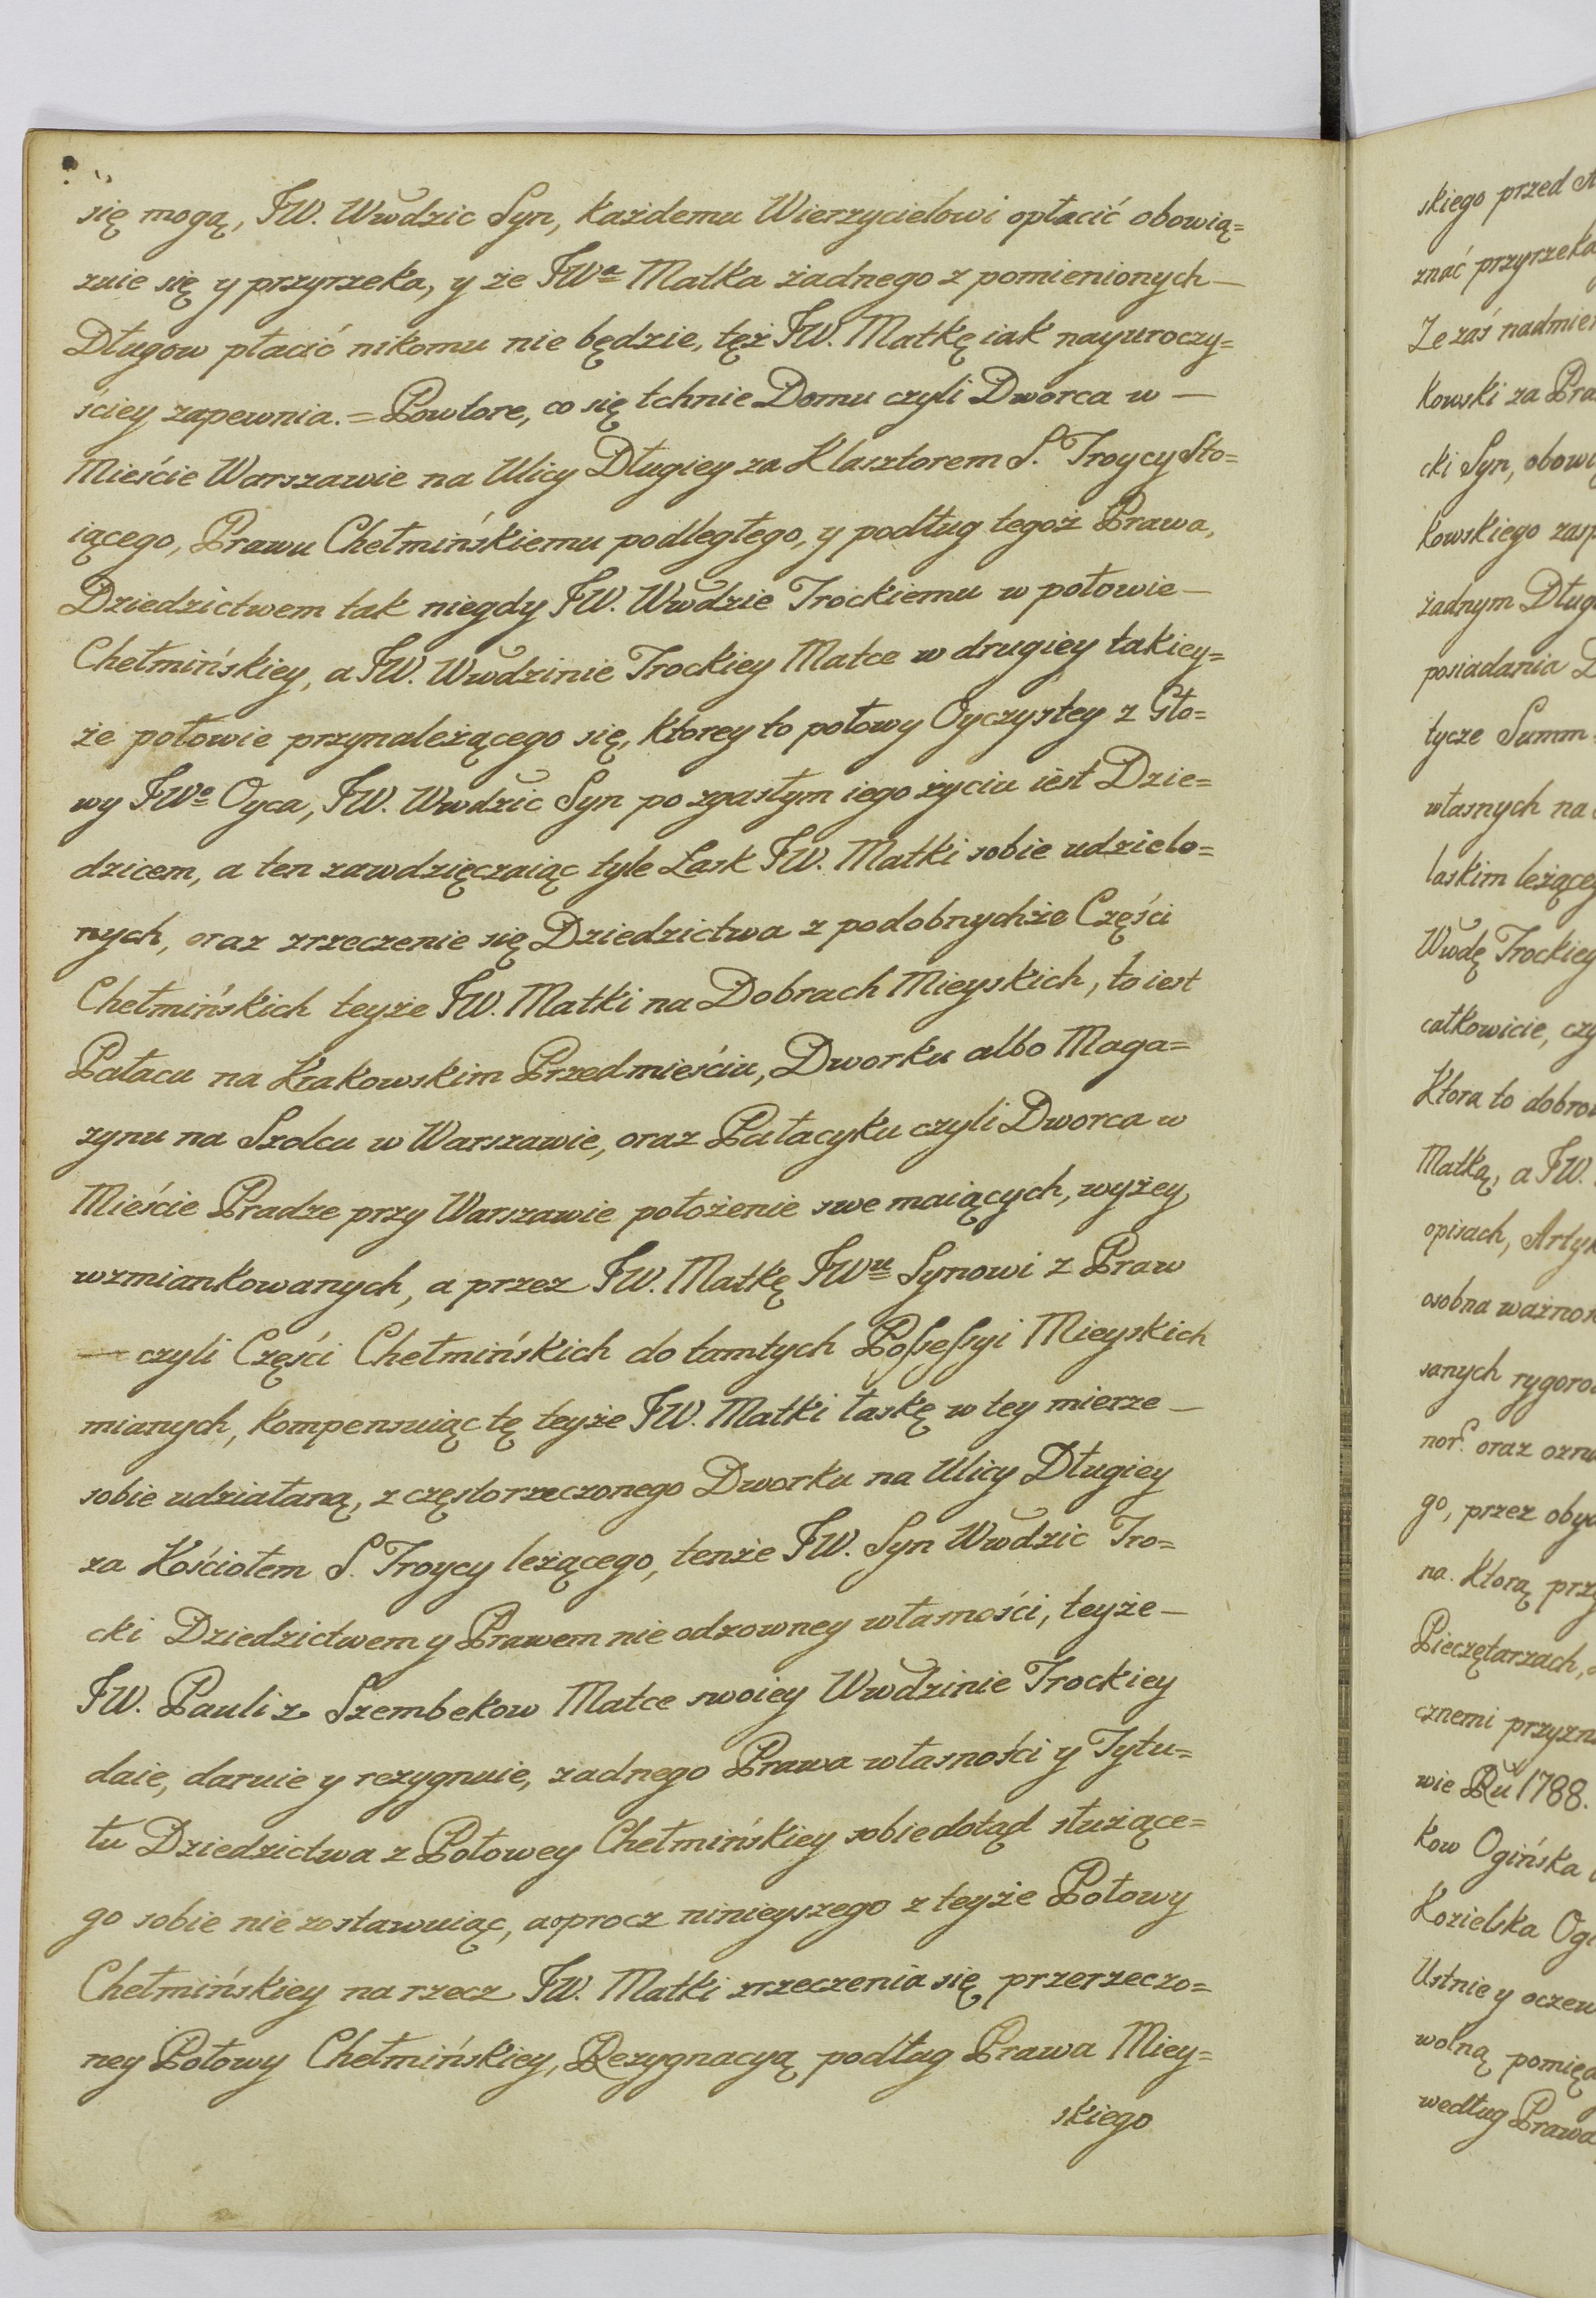 się mogą, JW. Wwdzic Syn, każdemu Wierzycielowi opłacić obowią=
zuie się y przyrzeka, y że JWa Matka żadnego z pomienionych —
Długow płacić nikomu nie będzie, tęż JW. Matkę iak nayuroczy=
ściey zapewnia. = Powtore, co się tchnie Domu czyli Dworca w —
Mieście Warszawie na Ulicy Długiey za Klasztorem S. Troycy sto=
iącego, Prawu Chełmińskiemu podległego, y podług tegoż Prawa,
Dziedzictwem tak niegdy JW. Wwdzie Trockiemu w połowie —
Chełmińskiey, a JW. Wwdzinie Trockiey Matce w drugiey takiey=
że połowie przynależącego się, ktorey to połowy Oyczystey z Gło=
wy JWo Oyca, JW. Wwdzic Syn po zgasłym iego życiu iest Dzie=
dzicem, a ten zawdzięczaiąc tyle Łask JW. Matki sobie udzielo=
nych, oraz zrzeczenie się Dziedzictwa z podobnychże Części
Chełmińskich teyże JW. Matki na Dobrach Mieyskich, to iest
Pałacu na Krakowskim Przedmieściu, Dworku albo Maga=
zynu na Szolcu w Warszawie, oraz Pałacyku czyli Dworca w
Mieście Pradze przy Warszawie położenie swe maiących, wyżey
wzmiankowanych, a przez JW. Matkę JWu Synowi z Praw
— czyli Części Chełmińskich do tamtych Possessyi Mieyskich
mianych, kompensuiąc tę teyże JW. Matki łaskę w tey mierze —
sobie udziałaną, z częstorzeczonego Dworku na Ulicy Długiey
za Kościołem S. Troycy leżącego, tenże JW. Syn Wwdzic Tro=
cki Dziedzictwem y Prawem nie odzowney własności, teyże —
JW. Pauli z Szembekow Matce swoiey Wwdzinie Trockiey
daie, daruie y rezygnuie, żadnego Prawa własności y Tytu=
łu Dziedzictwa z Połowey Chełmińskiey sobie dotąd służące=
go sobie nie zostawuiąc, a oprocz ninieyszego z teyże Połowy
Chełmińskiey na rzecz JW. Matki zrzeczenia się przerzeczo=
ney Połowy Chełmińskiey, Rezygnacyą podług Prawa Miey=
skiego
skiego przed
znać przyrzeka
Ze zaś
kowski za
cki Syn,
kowskiego
żadnym
posiadania
tycze Summ
własnych na
laskim
Wwdę Trockiey
całkowicie,
Ktora to
Matką, a JW.
opisach,
osobna
sanych
nor. oraz
go, przez
na. Ktorą
Pieczętarzach,
cznemi
wie Ru 1788.
kow Ogińska
Kozielska
Ustnie y
wolną
według Prawa